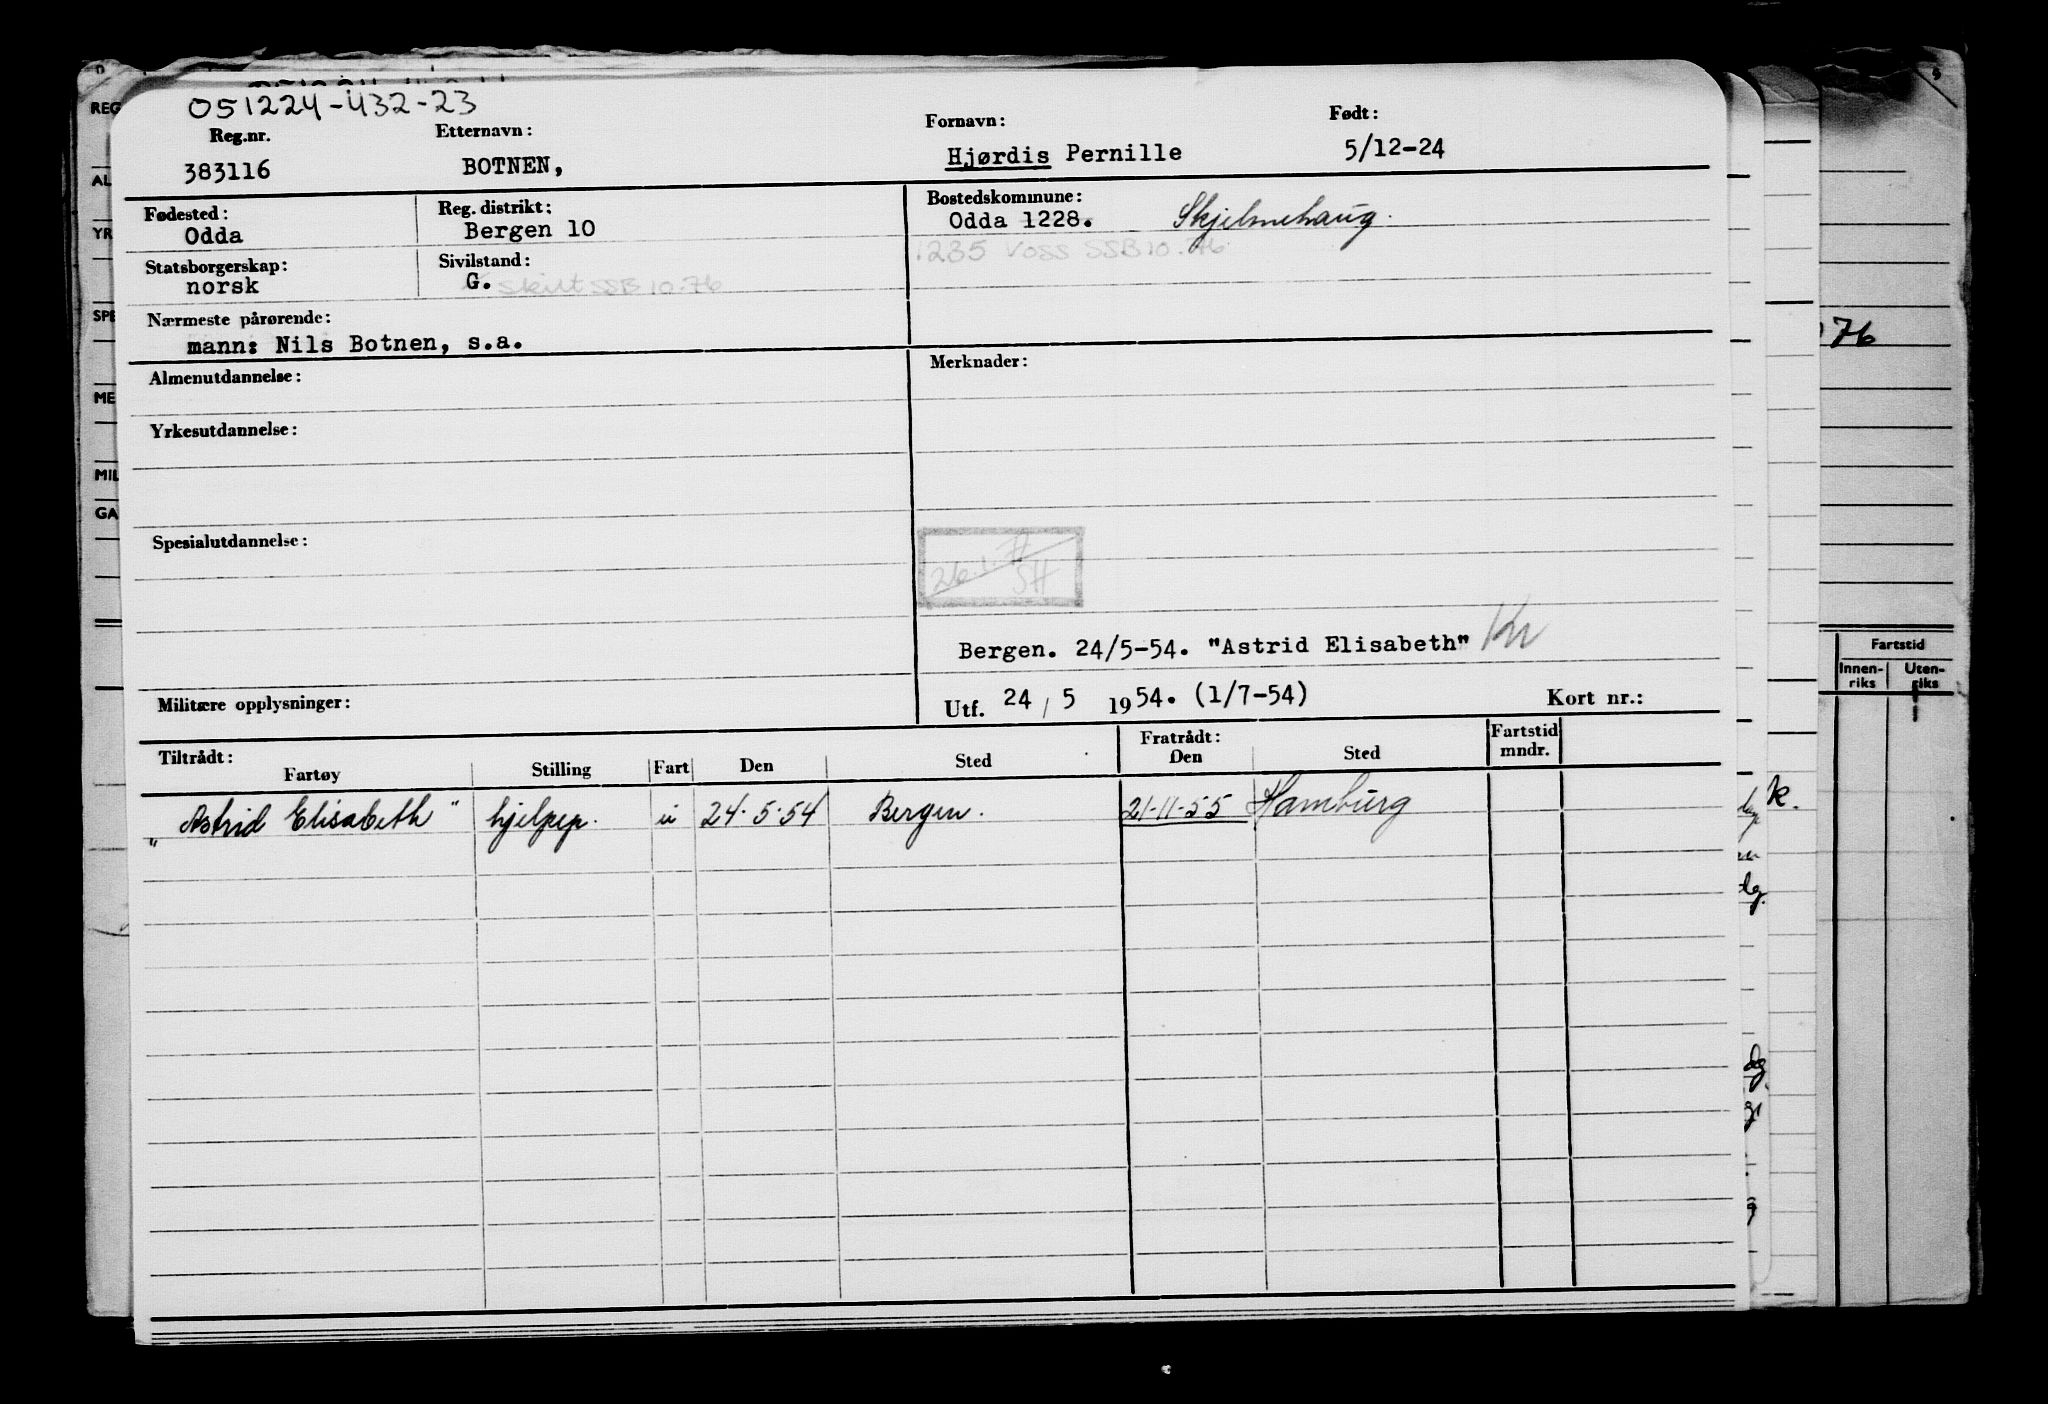 051224-432-23
Reg.nr. Etternavn: Fornavn: Født:
383116 BOTNEN, Hjørdis Pernille 5/12-24
Fødested: Reg. distrikt: Bostedskommune:
Odda Bergen 10 Odda 1228. Skjelmehaug.
1235 Voss SSB 10.76
Statsborgerskap: Sivilstand:
norsk G. skilt SSB 10.76
Nærmeste pårørende:
mann: Nils Botnen, s.a.
Almenutdannelse: Merknader:
Yrkesutdannelse:
Spesialutdannelse:
SH
Bergen. 24/5-54. "Astrid Elisabeth" Kr
Militære opplysninger: Utf. 24 / 5 1954. (1/7-54) Kort nr.:
Tiltrådt: Fratrådt: Fartstid
Fartøy Stilling Fart Den Sted Den Sted mndr.
"Astrid Elisabeth" hjelpep. u 24.5.54 Bergen. 21-11-55 Hamburg
REG
AL
YR
SPE
ME
MIL
GA
76
Fartstid
Innen- Uten-
riks riks
k.